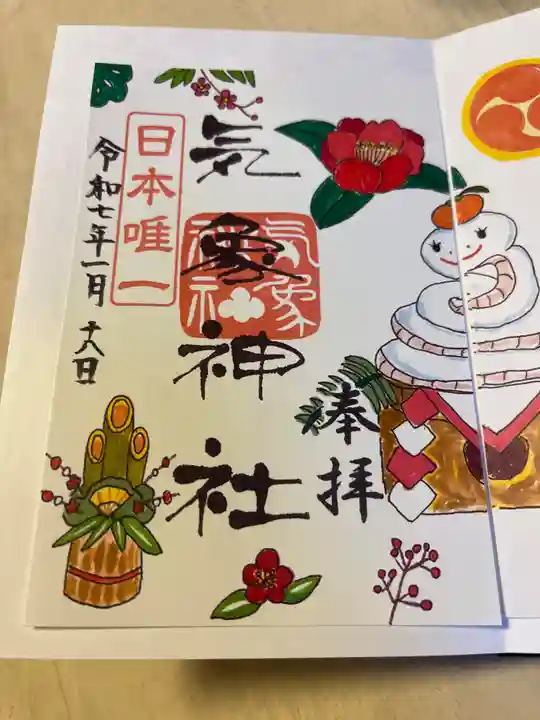 奉拝
気象神社
気象神社
日本唯一
令和七年一月十八日